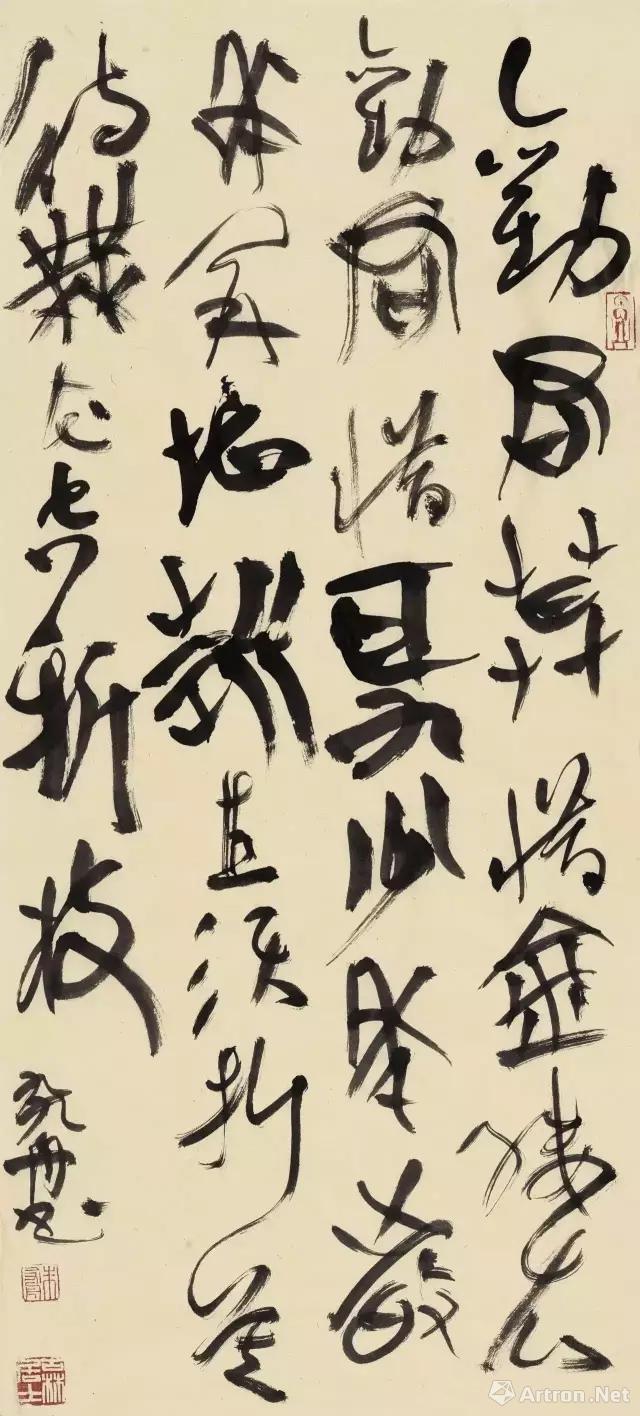 勸君莫惜金縷衣
勸君惜取少年時
花開堪折直須折莫
待無花空折枝
Artron.Net